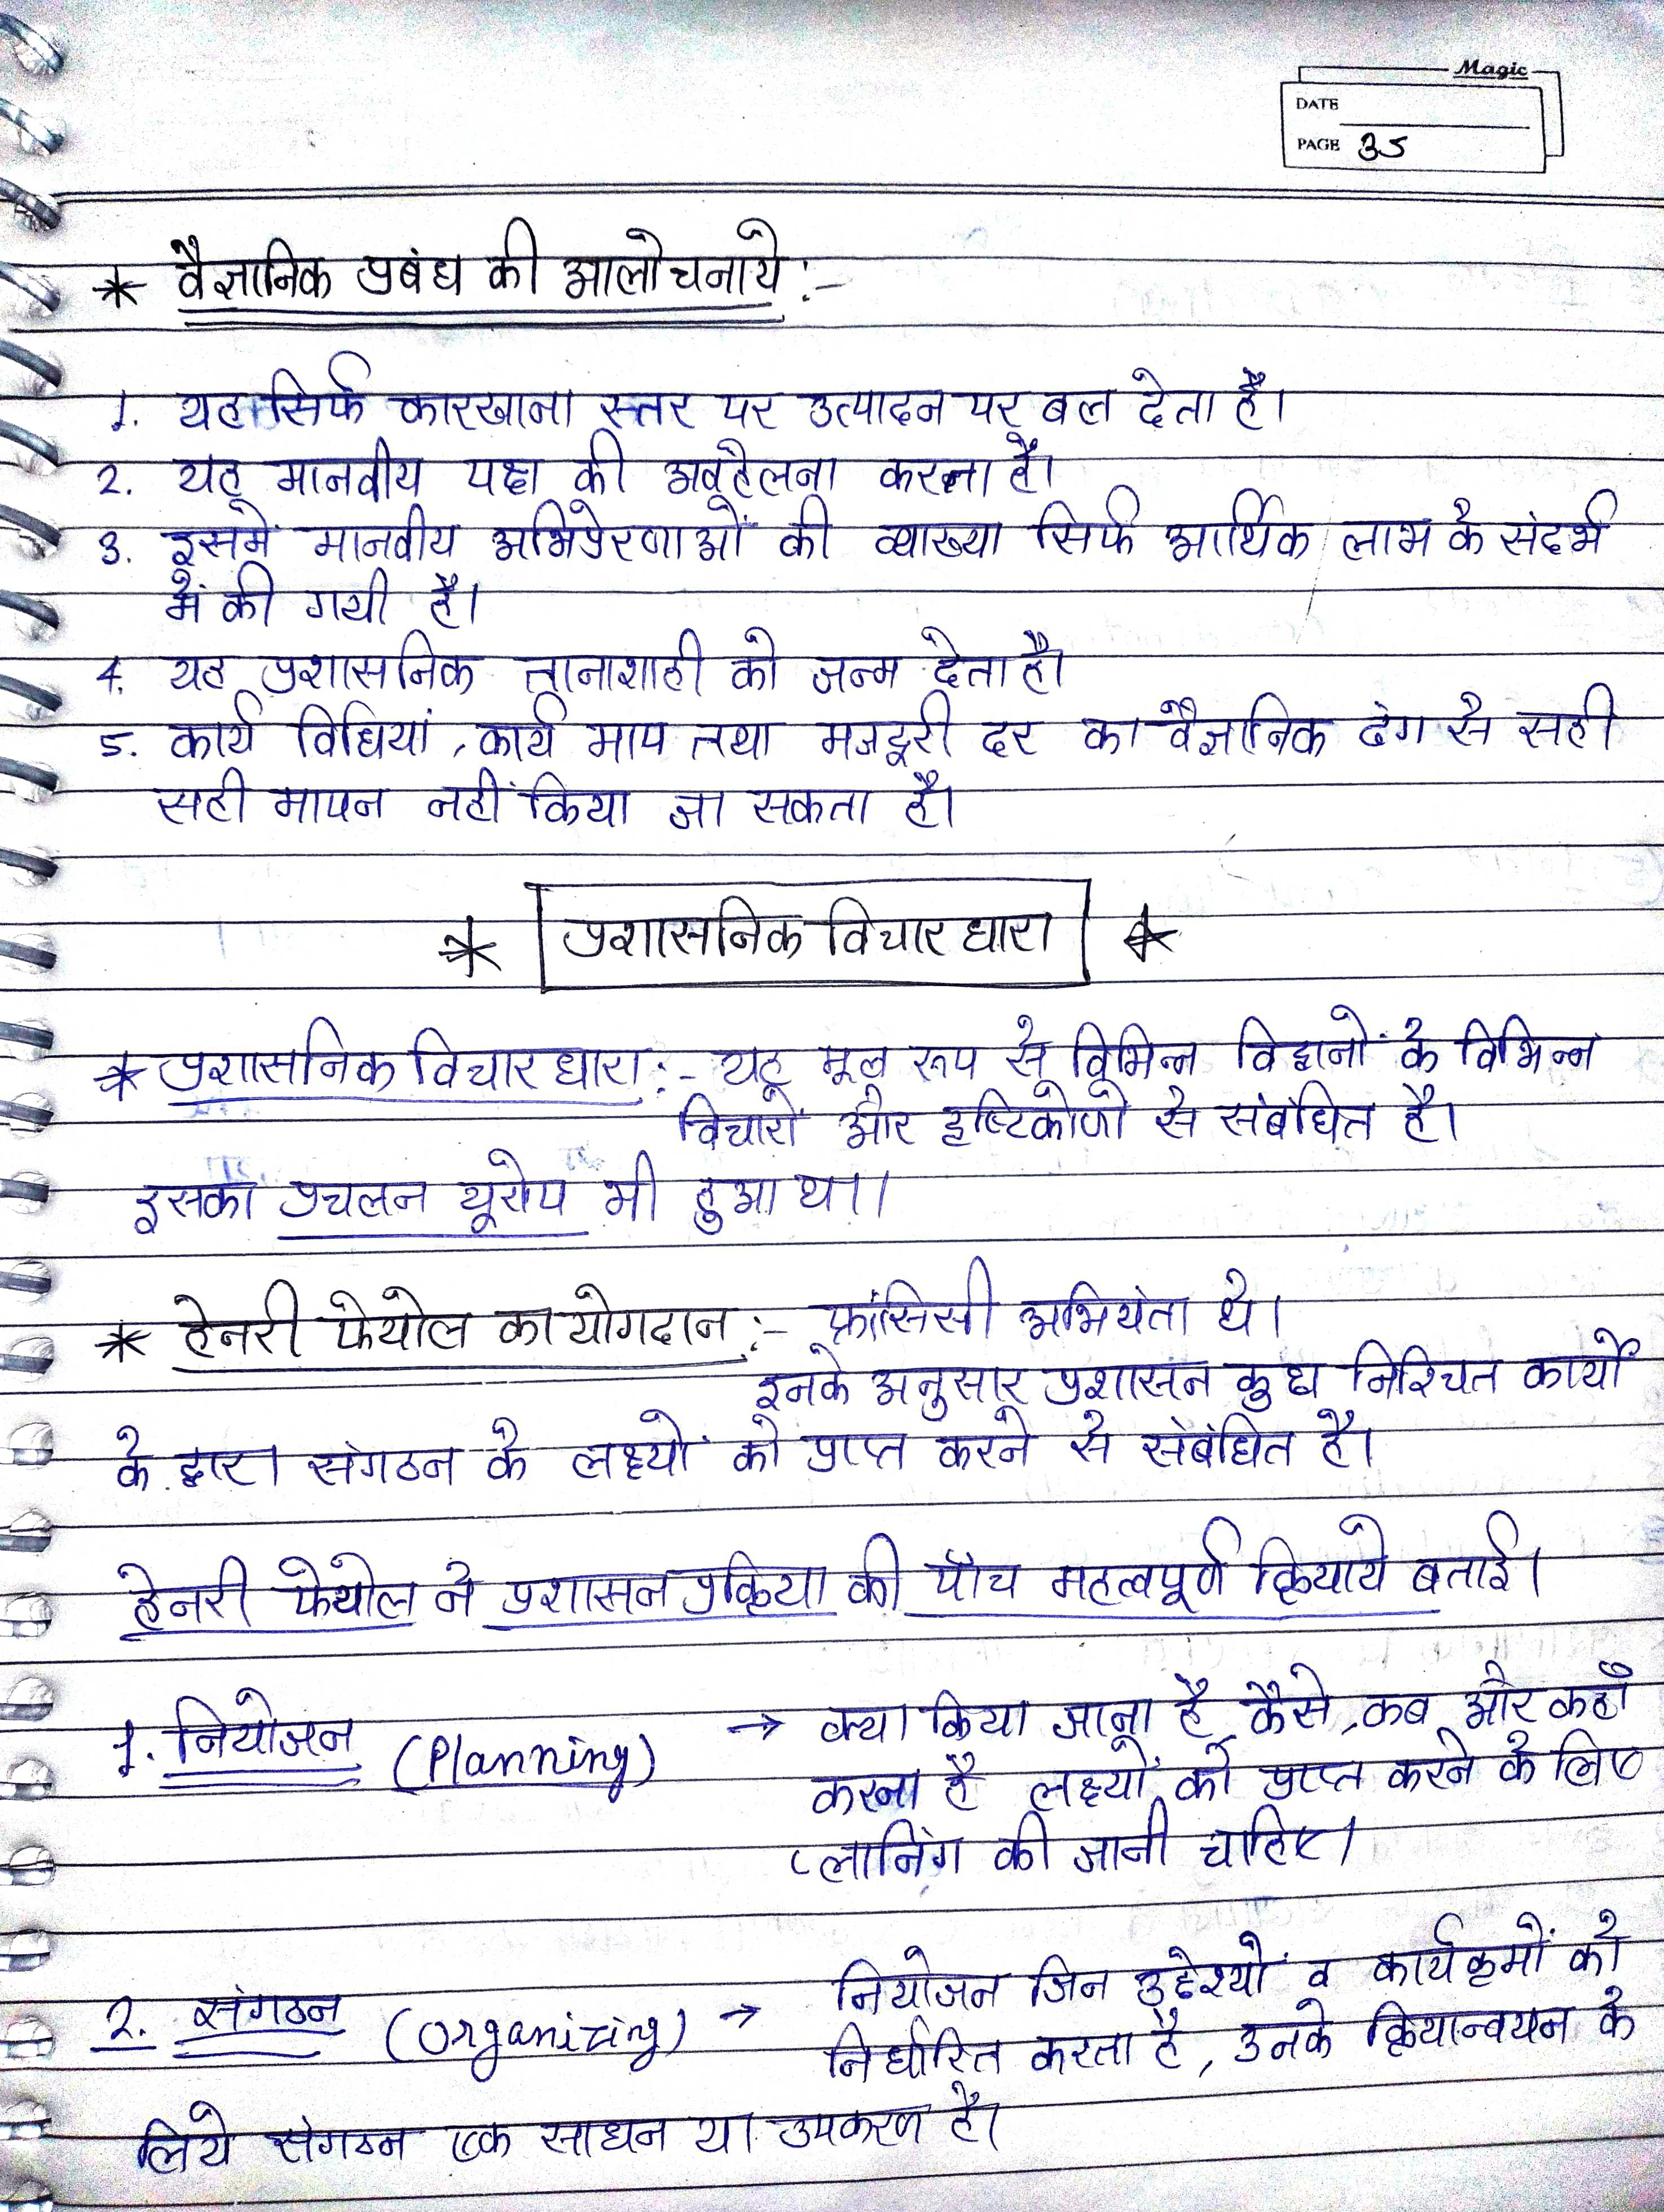 Magic
DATE
PAGE 35
* वैज्ञानिक प्रबंध की आलोचनाये :-
1. यह सिर्फ कारखाना स्तर पर उत्पादन पर बल देता है।
2. यह मानवीय पक्ष की अवहेलना करता है।
3. इसमें मानवीय अभिप्रेरणाओं की व्याख्या सिर्फ आर्थिक लाभ के संदर्भ
में की गयी है।
4. यह प्रशासनिक तानाशाही को जन्म देता है।
5. कार्य विधियां, कार्य माप तथा मजदूरी दर का वैज्ञानिक ढंग से सही
सही मापन नहीं किया जा सकता है।
* प्रशासनिक विचारधारा *
* प्रशासनिक विचारधारा :- यह मूल रूप से विभिन्न विद्वानों के विभिन्न
विचारों और दृष्टिकोणो से संबंधित है।
इसका प्रचलन यूरोप भी हुआ था।
* हेनरी फेयोल का योगदान :- फ्रांसिसी अभियंता थे।
इनके अनुसार प्रशासन कुछ निश्चित कार्यों
के द्वारा संगठन के लक्ष्यों को प्राप्त करने से संबंधित है।
हेनरी फेयोल ने प्रशासन प्रक्रिया की पाँच महत्वपूर्ण क्रियाये बताई।
1. नियोजन (Planning) → क्या किया जाना है कैसे, कब और कहाँ
करना है लक्ष्यों को प्राप्त करने के लिए
प्लानिंग की जानी चाहिए।
2. संगठन (Organizing) → नियोजन जिन उद्देश्यों व कार्यक्रमों को
निर्धारित करता है, उनके क्रियान्वयन के
लिये संगठन एक साधन या उपकरण है।